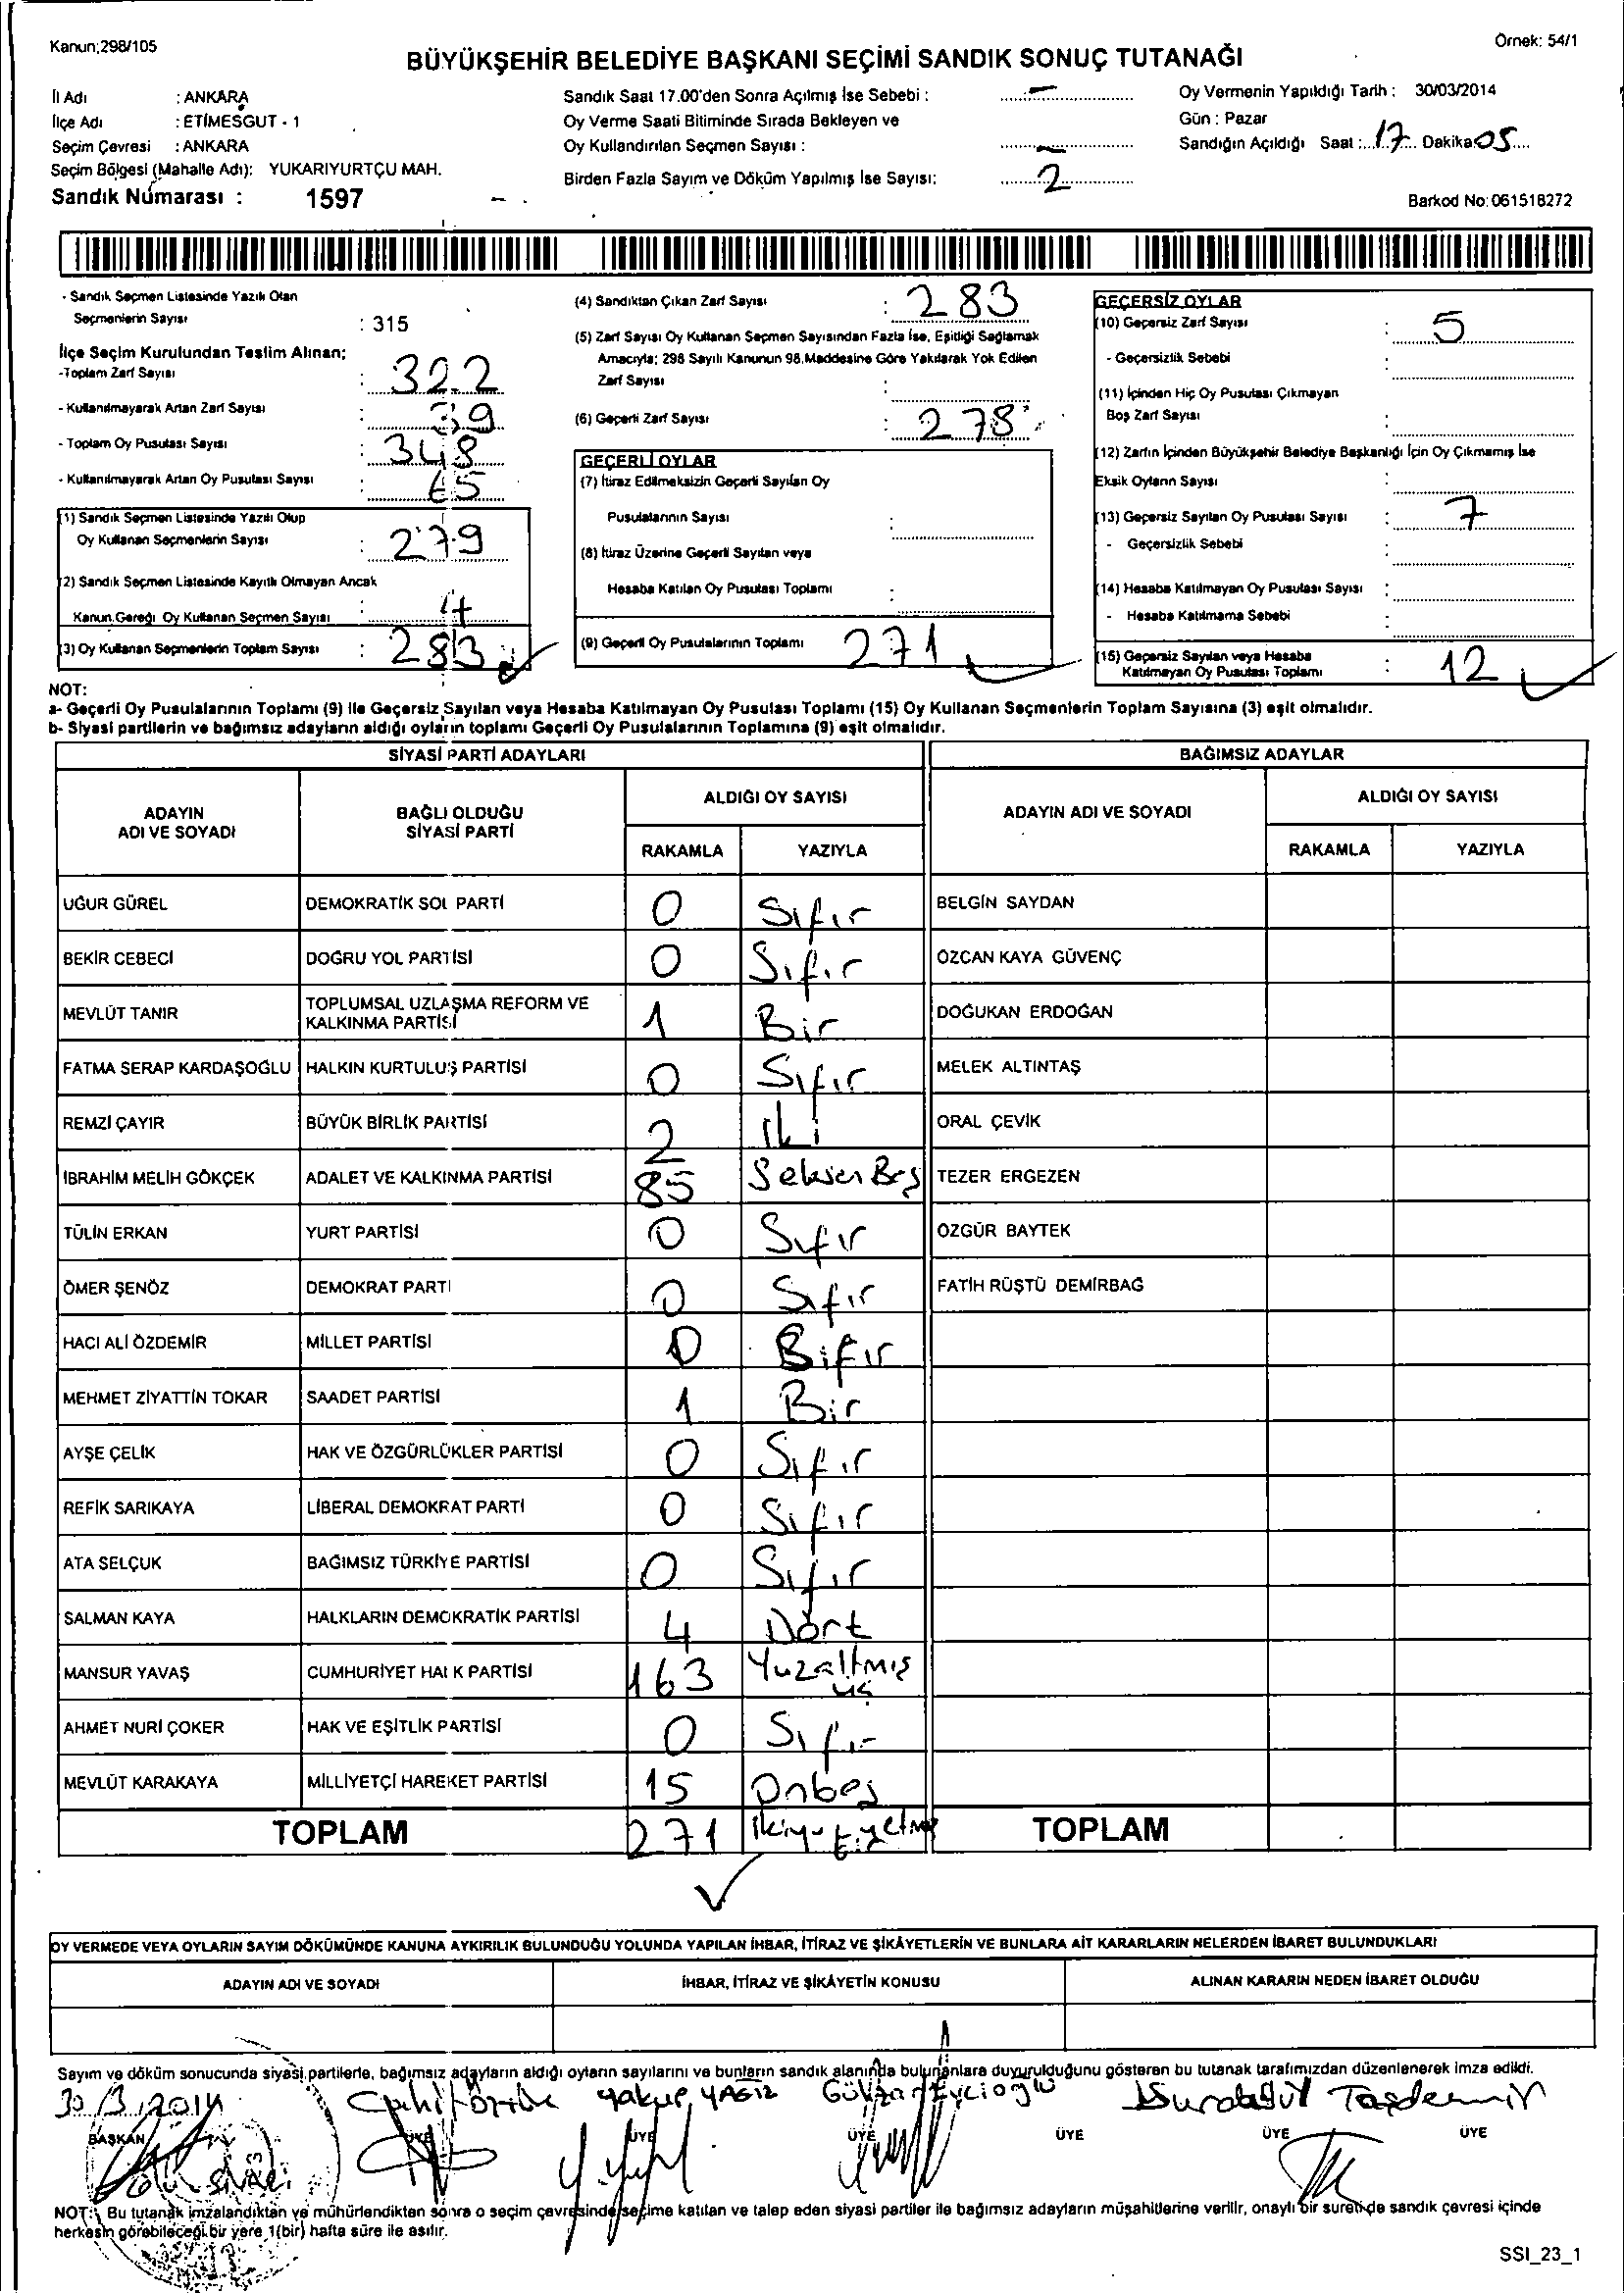 Kanun;298/105
Örnek: 54/1
BÜYÜKŞEHİR BELEDİYE BAŞKANI SEÇİMİ SANDIK SONUÇ TUTANAĞI
İl Adı : ANKARA
İlçe Adı : ETİMESGUT - 1
Seçim Çevresi : ANKARA
Seçim Bölgesi (Mahalle Adı): YUKARIYURTÇU MAH.
Sandık Numarası : 1597
Sandık Saat 17.00'den Sonra Açılmış İse Sebebi : -
Oy Verme Saati Bitiminde Sırada Bekleyen ve
Oy Kullandırılan Seçmen Sayısı : -
Birden Fazla Sayım ve Döküm Yapılmış İse Sayısı: 2
Oy Vermenin Yapıldığı Tarih : 30/03/2014
Gün : Pazar
Sandığın Açıldığı Saat : 17 Dakika 05
Barkod No: 061518272
- Sandık Seçmen Listesinde Yazılı Olan
Seçmenlerin Sayısı : 315
İlçe Seçim Kurulundan Teslim Alınan;
-Toplam Zarf Sayısı : 322
- Kullanılmayarak Artan Zarf Sayısı : 39
- Toplam Oy Pusulası Sayısı : 348
- Kullanılmayarak Artan Oy Pusulası Sayısı : 65
(1) Sandık Seçmen Listesinde Yazılı Olup
Oy Kullanan Seçmenlerin Sayısı : 279
(2) Sandık Seçmen Listesinde Kayıtlı Olmayan Ancak
Kanun Gereği Oy Kullanan Seçmen Sayısı : 4
(3) Oy Kullanan Seçmenlerin Toplam Sayısı : 283
(4) Sandıktan Çıkan Zarf Sayısı : 283
(5) Zarf Sayısı Oy Kullanan Seçmen Sayısından Fazla İse, Eşitliği Sağlamak
Amacıyla; 298 Sayılı Kanunun 98.Maddesine Göre Yakılarak Yok Edilen
Zarf Sayısı :
(6) Geçerli Zarf Sayısı : 278
GEÇERLİ OYLAR
(7) İtiraz Edilmeksizin Geçerli Sayılan Oy
Pusulalarının Sayısı :
(8) İtiraz Üzerine Geçerli Sayılan veya
Hesaba Katılan Oy Pusulası Toplamı :
(9) Geçerli Oy Pusulalarının Toplamı 271
GEÇERSİZ OYLAR
(10) Geçersiz Zarf Sayısı : 5
- Geçersizlik Sebebi :
(11) İçinden Hiç Oy Pusulası Çıkmayan
Boş Zarf Sayısı :
(12) Zarfın İçinden Büyükşehir Belediye Başkanlığı İçin Oy Çıkmamış İse
Eksik Oyların Sayısı :
(13) Geçersiz Sayılan Oy Pusulası Sayısı : 7
- Geçersizlik Sebebi :
(14) Hesaba Katılmayan Oy Pusulası Sayısı :
- Hesaba Katılmama Sebebi :
(15) Geçersiz Sayılan veya Hesaba
Katılmayan Oy Pusulası Toplamı : 12
NOT:
a- Geçerli Oy Pusulalarının Toplamı (9) ile Geçersiz Sayılan veya Hesaba Katılmayan Oy Pusulası Toplamı (15) Oy Kullanan Seçmenlerin Toplam Sayısına (3) eşit olmalıdır.
b- Siyasi partilerin ve bağımsız adayların aldığı oyların toplamı Geçerli Oy Pusulalarının Toplamına (9) eşit olmalıdır.
SİYASİ PARTİ ADAYLARI BAĞIMSIZ ADAYLAR
ADAYIN
ADI VE SOYADI
BAĞLI OLDUĞU
SİYASİ PARTİ
ALDIĞI OY SAYISI
RAKAMLA YAZIYLA
ADAYIN ADI VE SOYADI
ALDIĞI OY SAYISI
RAKAMLA YAZIYLA
UĞUR GÜREL DEMOKRATİK SOL PARTİ 0 Sıfır BELGİN SAYDAN
BEKİR CEBECİ DOĞRU YOL PARTİSİ 0 Sıfır ÖZCAN KAYA GÜVENÇ
MEVLÜT TANIR TOPLUMSAL UZLAŞMA REFORM VE
KALKINMA PARTİSİ 1 Bir DOĞUKAN ERDOĞAN
FATMA SERAP KARDAŞOĞLU HALKIN KURTULUŞ PARTİSİ 0 Sıfır MELEK ALTINTAŞ
REMZİ ÇAYIR BÜYÜK BİRLİK PARTİSİ 2 iki ORAL ÇEVİK
İBRAHİM MELİH GÖKÇEK ADALET VE KALKINMA PARTİSİ 85 Seksen Beş TEZER ERGEZEN
TÜLİN ERKAN YURT PARTİSİ 0 Sıfır ÖZGÜR BAYTEK
ÖMER ŞENÖZ DEMOKRAT PARTİ 0 Sıfır FATİH RÜŞTÜ DEMİRBAĞ
HACI ALİ ÖZDEMİR MİLLET PARTİSİ 0 Sıfır
MEHMET ZİYATTİN TOKAR SAADET PARTİSİ 1 Bir
AYŞE ÇELİK HAK VE ÖZGÜRLÜKLER PARTİSİ 0 Sıfır
REFİK SARIKAYA LİBERAL DEMOKRAT PARTİ 0 Sıfır
ATA SELÇUK BAĞIMSIZ TÜRKİYE PARTİSİ 0 Sıfır
SALMAN KAYA HALKLARIN DEMOKRATİK PARTİSİ 4 Dört
MANSUR YAVAŞ CUMHURİYET HALK PARTİSİ 163 Yuzaltmış
üç
AHMET NURİ ÇOKER HAK VE EŞİTLİK PARTİSİ 0 Sıfır
MEVLÜT KARAKAYA MİLLİYETÇİ HAREKET PARTİSİ 15 Onbeş
TOPLAM 271 TOPLAM
OY VERMEDE VEYA OYLARIN SAYIM DÖKÜMÜNDE KANUNA AYKIRILIK BULUNDUĞU YOLUNDA YAPILAN İHBAR, İTİRAZ VE ŞİKÂYETLERİN VE BUNLARA AİT KARARLARIN NELERDEN İBARET BULUNDUKLARI
ADAYIN ADI VE SOYADI İHBAR, İTİRAZ VE ŞİKÂYETİN KONUSU ALINAN KARARIN NEDEN İBARET OLDUĞU
Sayım ve döküm sonucunda siyasi partilerle, bağımsız adayların aldığı oyların sayılarını ve bunların sandık alanında bulunanlara duyurulduğunu gösteren bu tutanak tarafımızdan düzenlenerek imza edildi.
30/3/2014 Yakup YAĞIZ Taşdemir
BAŞKAN ÜYE ÜYE ÜYE ÜYE ÜYE ÜYE
NOT: Bu tutanak imzalandıktan ve mühürlendikten sonra o seçim çevresinde seçime katılan ve talep eden siyasi partiler ile bağımsız adayların müşahitlerine verilir, onaylı bir suretide sandık çevresi içinde
herkesin görebileceği bir yere 1(bir) hafta süre ile asılır.
SSI_23_1